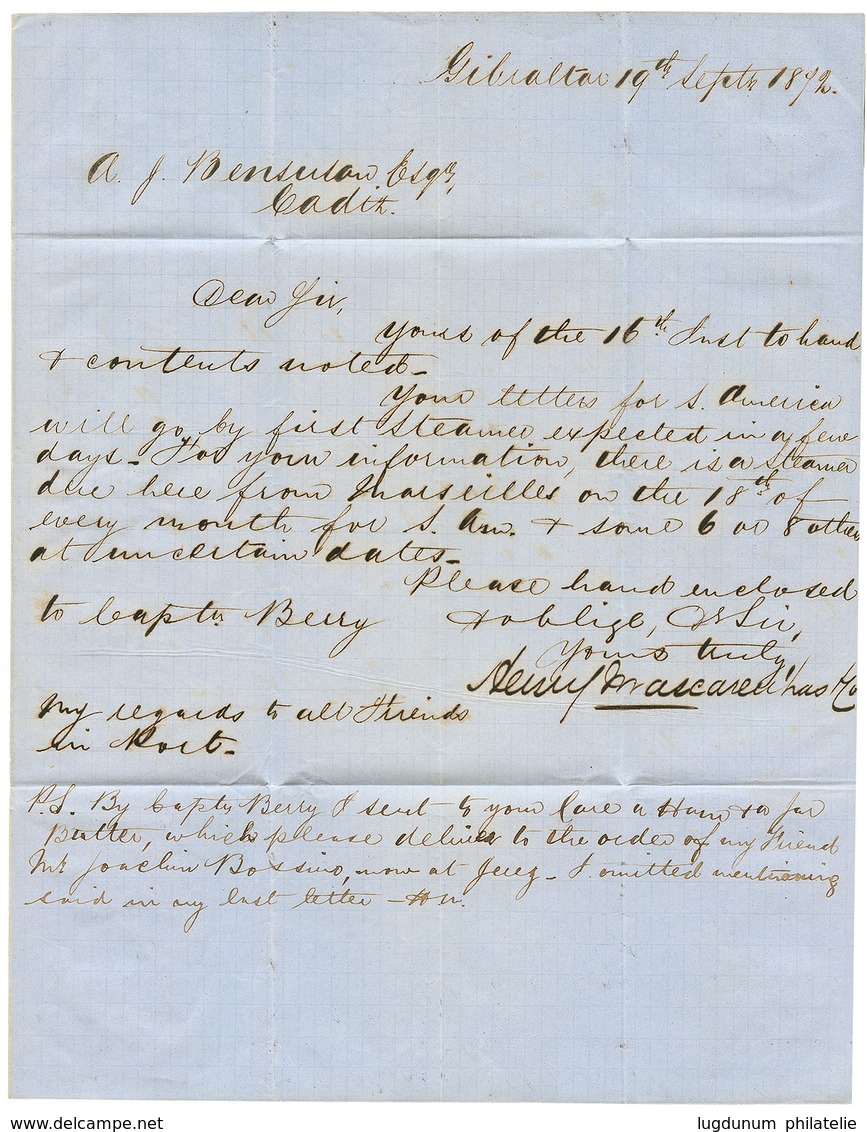 Gibraltar 19th Septr 1872.
A. J. Bensusan Esqr,
Cadiz.
Dear Sir,
Yours of the 16th Inst to hand
& contents noted_
Your letters for S. America
will go by first Steamer expected in a few
days_ For your information, there is a steamer
due here from Marseilles on the 18th of
every month for S. Am. & some 6 or 8 others
at uncertain dates_
Please hand enclosed
to Captn Berry & oblige, Dr Sir,
Yours truly,
Henry Mascarenhas Co
My regards to all Friends
in Port_
P.S. By Captn Berry I sent to your Care a Ham & a Jar
Butter, which please deliver to the order of my Friend
Mr Joachin Bossino, now at Jerez_ I omitted mentioning
said in my last letter_ H M.
delcampe.net
lugdunum philatelie